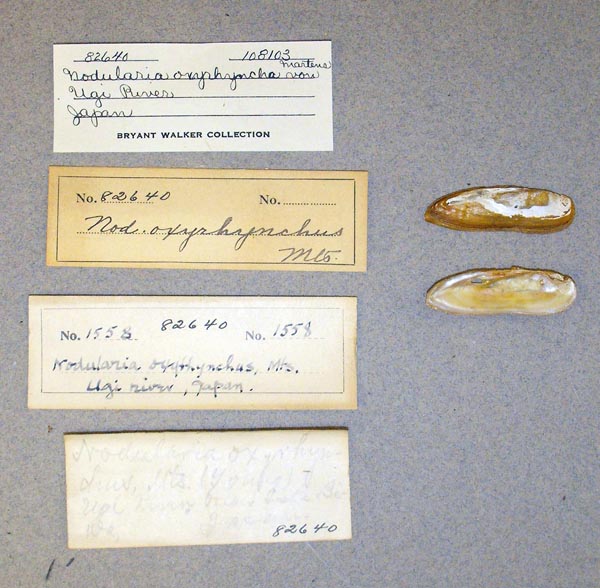 82640 108103
Martens
Nodularia oxyrhyncha von
Ugi River
Japan
BRYANT WALKER COLLECTION
No. 82640 No.
Nod. oxyrhynchus
Mts.
No. 1558 82640 No. 1558
Nodularia oxyrhynchus, Mts.
Ugi river, Japan.
Nodularia oxyrhyn-
chus, Mts. (Young)
Ugi
82640